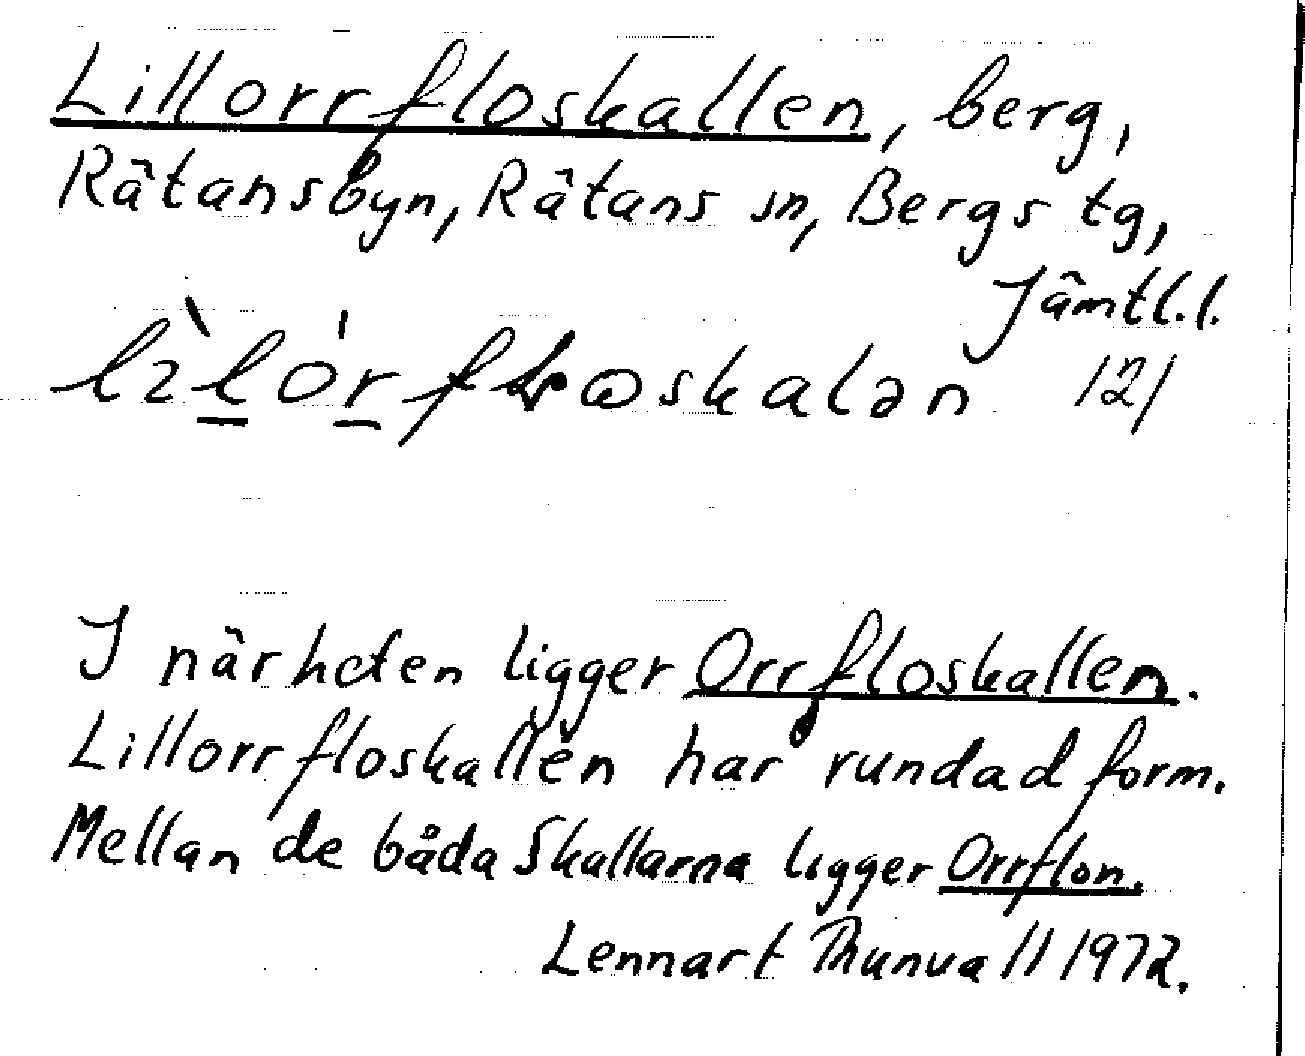 Lillorrfloskallen, berg,
Rätansbyn, Rätans sn, Bergs tg,
Jämtl.l.
121
I närheten ligger Orrfloskallen.
Lillorrfloskallen har rundad form.
Mellan de båda Skallarna ligger Orrflon.
Lennart Thunvall 1972.